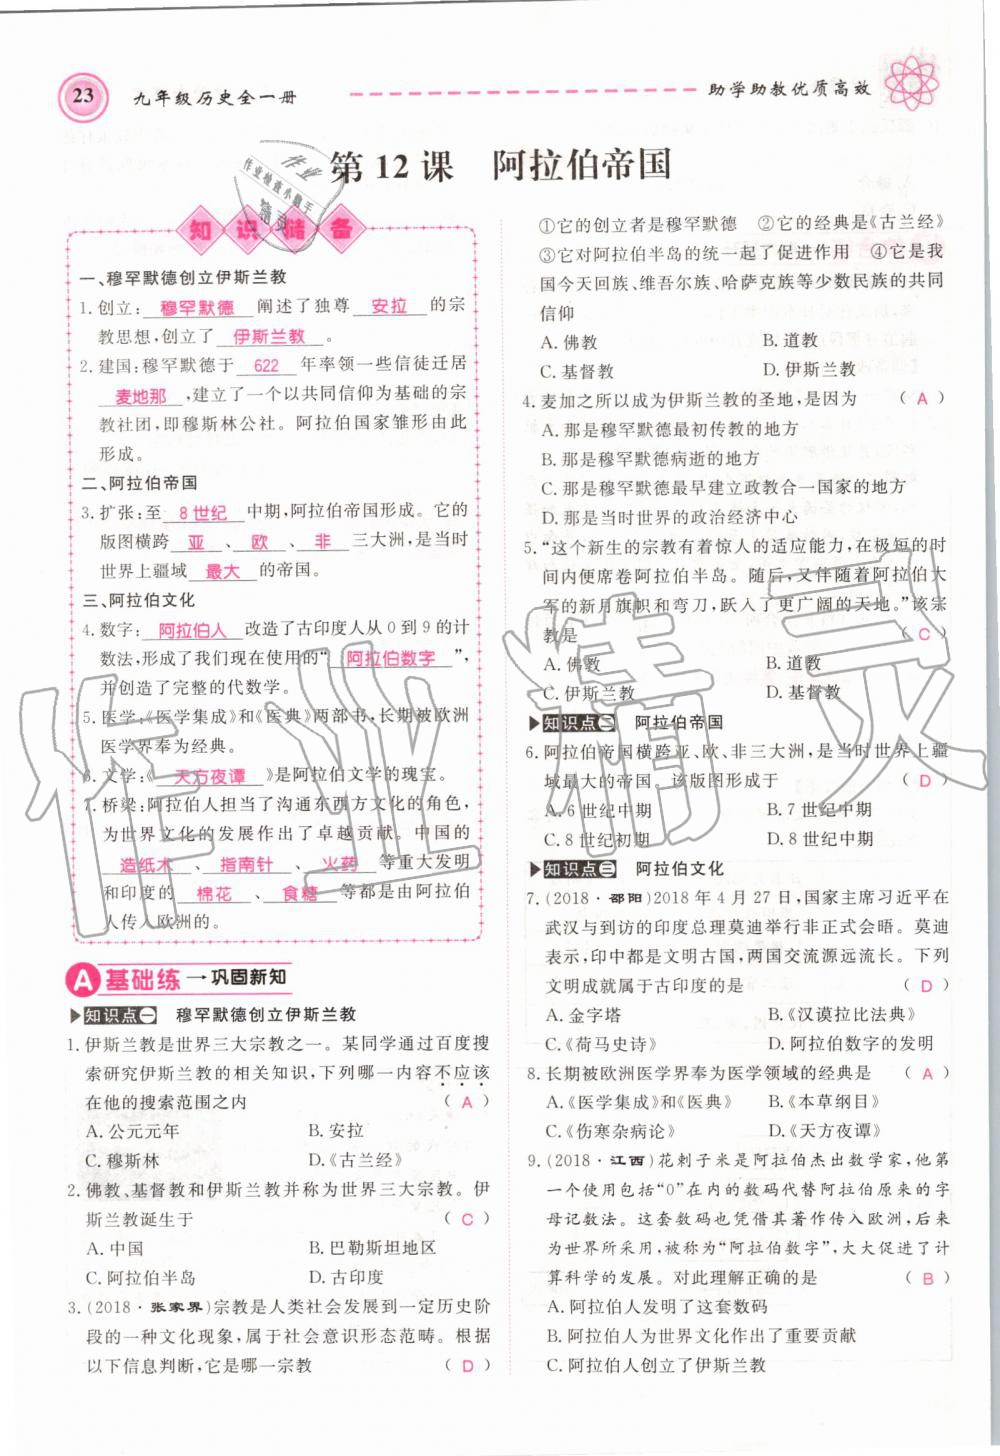 23
九年级历史全一册
助学助教优质高效
第12课 阿拉伯帝国
知识储备
一、穆罕默德创立伊斯兰教
1. 创立：穆罕默德 阐述了独尊 安拉 的宗
教思想，创立了 伊斯兰教 。
2. 建国：穆罕默德于 622 年率领一些信徒迁居
麦地那 ，建立了一个以共同信仰为基础的宗
教社团，即穆斯林公社。阿拉伯国家雏形由此
形成。
二、阿拉伯帝国
3. 扩张：至 8世纪 中期，阿拉伯帝国形成。它的
版图横跨 亚 、 欧 、 非 三大洲，是当时
世界上疆域 最大 的帝国。
三、阿拉伯文化
4. 数字：阿拉伯人 改造了古印度人从0到9的计
数法，形成了我们现在使用的“ 阿拉伯数字 ”，
并创造了完整的代数学。
5. 医学：《医学集成》和《医典》两部书，长期被欧洲
医学界奉为经典。
6. 文学：《 天方夜谭 》是阿拉伯文学的瑰宝。
7. 桥梁：阿拉伯人担当了沟通东西方文化的角色，
为世界文化的发展作出了卓越贡献。中国的
造纸术 、 指南针 、 火药 等重大发明
和印度的 棉花 、 食糖 等都是由阿拉伯
人传入欧洲的。
A 基础练 → 巩固新知
知识点一 穆罕默德创立伊斯兰教
1. 伊斯兰教是世界三大宗教之一。某同学通过百度搜
索研究伊斯兰教的相关知识，下列哪一内容不应该
在他的搜索范围之内 （ A ）
A. 公元元年 B. 安拉
C. 穆斯林 D.《古兰经》
2. 佛教、基督教和伊斯兰教并称为世界三大宗教。伊
斯兰教诞生于 （ C ）
A. 中国 B. 巴勒斯坦地区
C. 阿拉伯半岛 D. 古印度
3. (2018·张家界)宗教是人类社会发展到一定历史阶
段的一种文化现象，属于社会意识形态范畴。根据
以下信息判断，它是哪一宗教 （ D ）
①它的创立者是穆罕默德 ②它的经典是《古兰经》
③它对阿拉伯半岛的统一起了促进作用 ④它是我
国今天回族、维吾尔族、哈萨克族等少数民族的共同
信仰
A. 佛教 B. 道教
C. 基督教 D. 伊斯兰教
4. 麦加之所以成为伊斯兰教的圣地，是因为 （ A ）
A. 那是穆罕默德最初传教的地方
B. 那是穆罕默德病逝的地方
C. 那是穆罕默德最早建立政教合一国家的地方
D. 那是当时世界的政治经济中心
5. “这个新生的宗教有着惊人的适应能力，在极短的时
间内便席卷阿拉伯半岛。随后，又伴随着阿拉伯大
军的新月旗帜和弯刀，跃入了更广阔的天地。”该宗
教是 （ C ）
A. 佛教 B. 道教
C. 伊斯兰教 D. 基督教
知识点二 阿拉伯帝国
6. 阿拉伯帝国横跨亚、欧、非三大洲，是当时世界上疆
域最大的帝国。该版图形成于 （ D ）
A. 6世纪中期 B. 7世纪中期
C. 8世纪初期 D. 8世纪中期
知识点三 阿拉伯文化
7. (2018·邵阳)2018年4月27日，国家主席习近平在
武汉与到访的印度总理莫迪举行非正式会晤。莫迪
表示，印中都是文明古国，两国交流源远流长。下列
文明成就属于古印度的是 （ D ）
A. 金字塔 B.《汉谟拉比法典》
C.《荷马史诗》 D. 阿拉伯数字的发明
8. 长期被欧洲医学界奉为医学领域的经典是 （ A ）
A.《医学集成》和《医典》 B.《本草纲目》
C.《伤寒杂病论》 D.《天方夜谭》
9. (2018·江西)花剌子米是阿拉伯杰出数学家，他第
一个使用包括“0”在内的数码代替阿拉伯原来的字
母记数法。这套数码也凭借其著作传入欧洲，后来
为世界所采用，被称为“阿拉伯数字”，大大促进了计
算科学的发展。对此理解正确的是 （ B ）
A. 阿拉伯人发明了这套数码
B. 阿拉伯人为世界文化作出了重要贡献
C. 阿拉伯人创立了伊斯兰教
作业精灵
作业
作业检查小助手
精灵